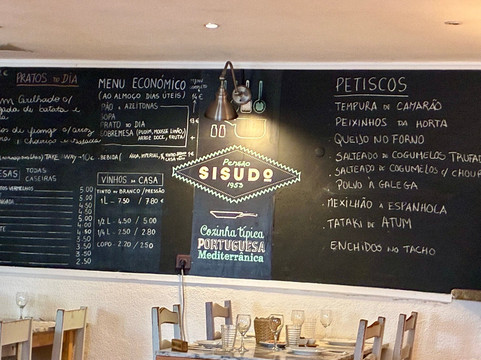 PRATOS DO DIA
Grelhado c/
de batata e
de frango c/ arroz
TAKE WAY → 10€
TODAS
CASEIRAS
5.00
5.00
4.50
3.50
3.50
3.50
2.50
MENU ECONÓMICO
(AO ALMOÇO DIAS ÚTEIS)
PÃO e AZEITONAS
SOPA
PRATO do DIA
SOBREMESA (PUDIM, MOUSSE LIMÃO,
ARROZ DOCE, FRUTA)
- BEBIDA
VINHOS da CASA
TINTO ou BRANCO / PRESSÃO
1 L - 7.50 / 7.80
1/2 L - 4.50 / 5.00
1/4 L - 2.50 / 2.80
COPO - 2.20 / 2.50
Pensão
SISUDO
1953
Cozinha típica
PORTUGUESA
Mediterrânica
PETISCOS
TEMPURA DE CAMARÃO
PEIXINHOS DA HORTA
QUEIJO NO FORNO
SALTEADO DE COGUMELOS TRUFA
SALTEADO DE COGUMELOS c/ CHOUR
POLVO A GALEGA
MEXILHÃO A ESPANHOLA
TATAKI DE ATUM
ENCHIDOS NO TACHO